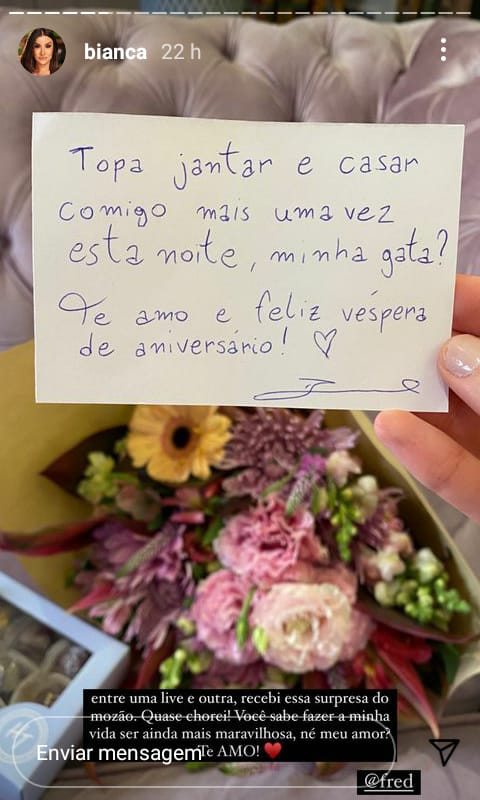 bianca 22 h
Topa jantar e casar
comigo mais uma vez
esta noite, minha gata?
Te amo e feliz véspera
de aniversário!
entre uma live e outra, recebi essa surpresa do
mozão. Quase chorei! Você sabe fazer a minha
vida ser ainda mais maravilhosa, né meu amor?
Te AMO! ♥️
Enviar mensagem
@fred